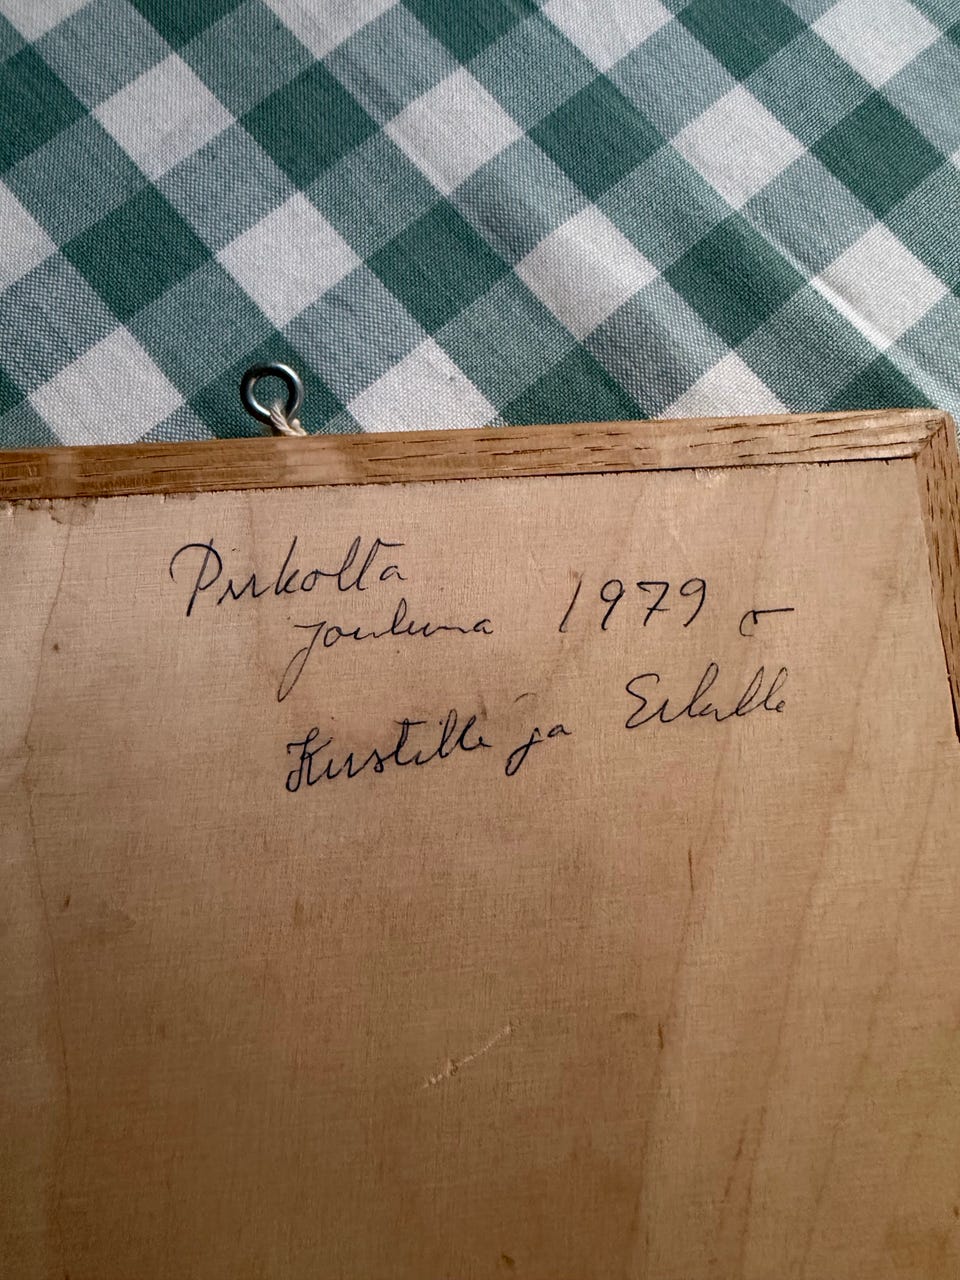 Pirkolta
jouluna 1979
Kirstille ja Erkille